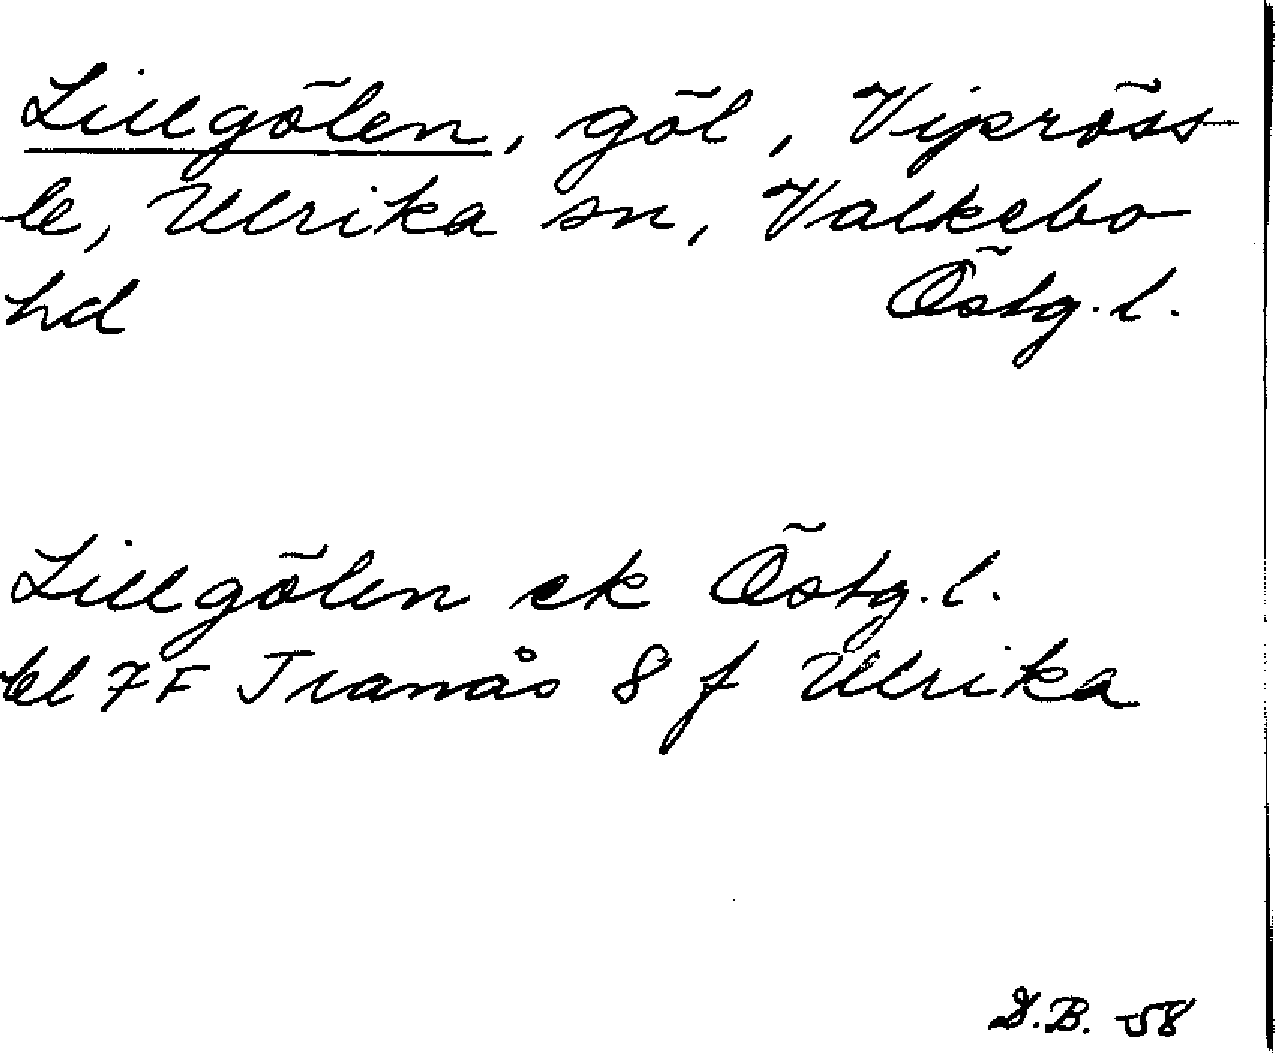 Lillgölen, göl, Vipröss-
le, Ulrika sn, Valkebo
hd Östg. l.
Lillgölen ek Östg. l.
bl 7F Tranås 8 f Ulrika
D.B. 58